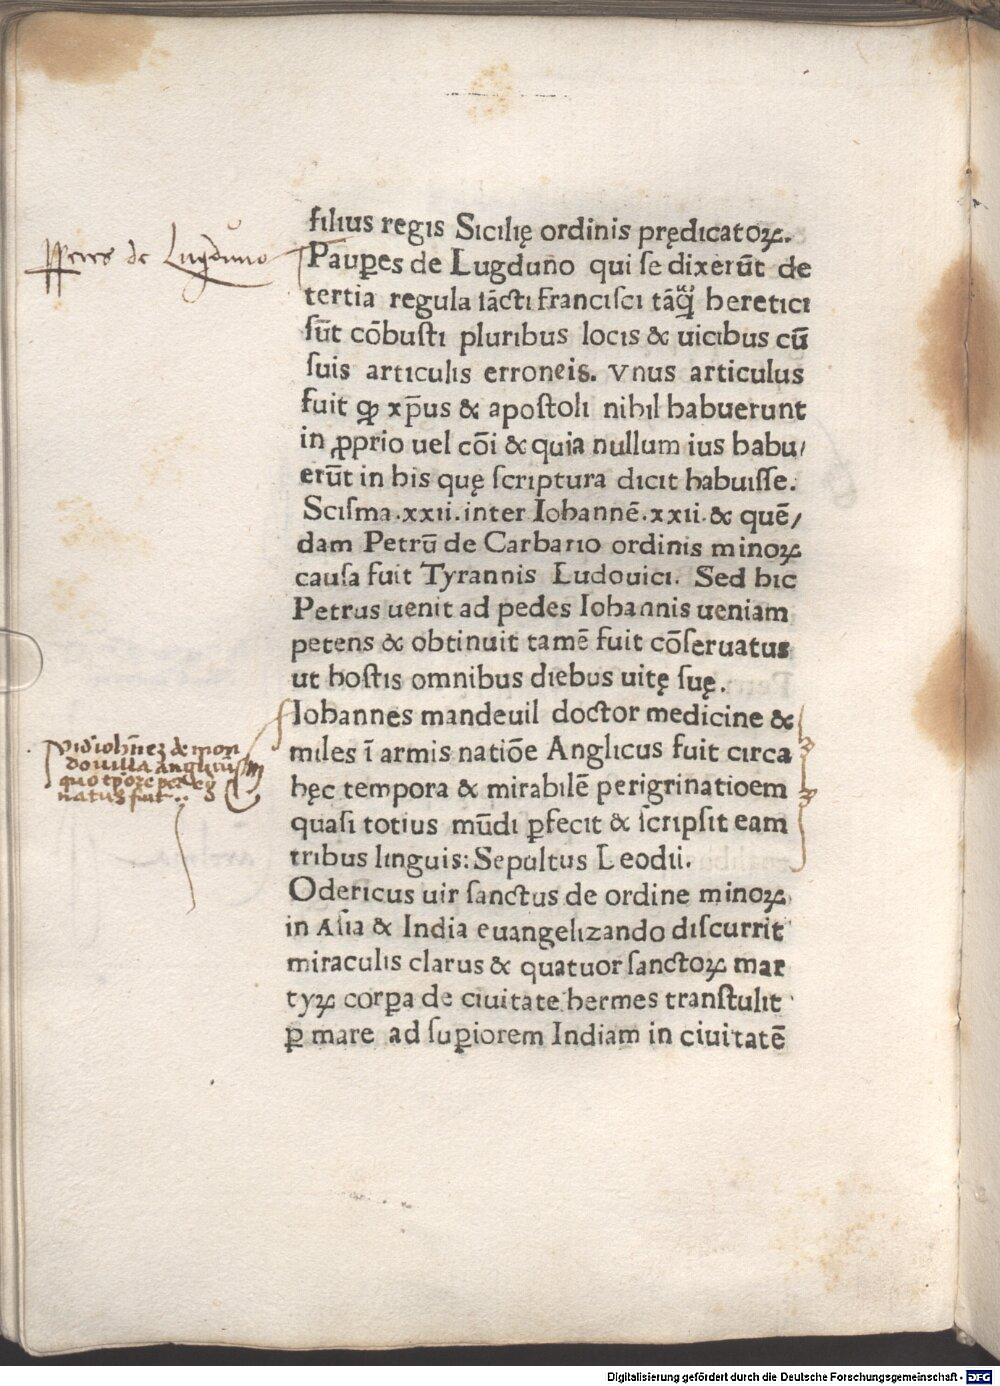 filius regis Sicilię ordinis prędicatoꝝ.
Paup̲es de Lugduno qui se dixerūt de
tertia regula sācti francisci tāq̃ heretici
sūt cōbusti pluribus locis & uicibus cū
suis articulis erroneis. Vnus articulus
fuit ꝙ xp̄us & apostoli nihil habuerunt
in ꝓprio uel cōi & quia nullum ius habu/
erūt in his quę scriptura dicit habuisse.
Scisma.xxii.inter Iohannē.xxii.& quē/
dam Petrū de Carbario ordinis minoꝝ
causa fuit Tyrannis Ludouici. Sed hic
Petrus uenit ad pedes Iohannis ueniam
petens & obtinuit tamē fuit cōseruatus
ut hostis omnibus diebus uitę suę.
Iohannes mandeuil doctor medicine &
miles ī armis natiōe Anglicus fuit circa
hęc tempora & mirabilē perigrinatioem
quasi totius mūdi ꝑfecit & scripsit eam
tribus linguis: Sepultus Leodii.
Odericus uir sanctus de ordine minoꝝ
in Asia & India euangelizando discurrit
miraculis clarus & quatuor sanctoꝝ mar
tyꝝ corꝑa de ciuitate hermes transtulit
ꝑ mare ad suꝑiorem Indiam in ciuitatē
de Lugduno
Digitalisierung gefördert durch die Deutsche Forschungsgemeinschaft - DFG